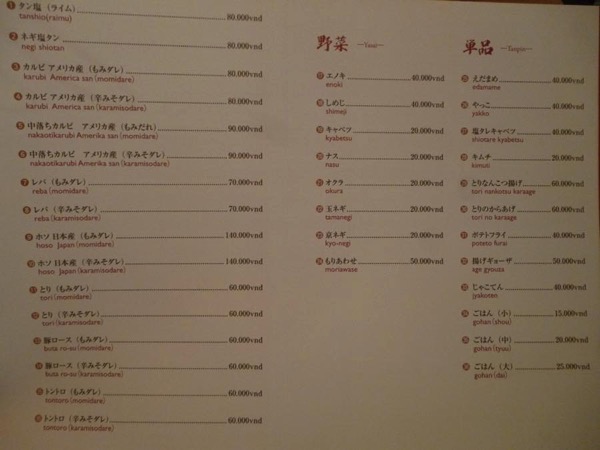 1 タン塩 (ライム) 80.000vnd
tanshio(raimu)
2 ネギ塩タン 80.000vnd
negi shiotan
3 カルビ アメリカ産 (もみダレ) 80.000vnd
karubi America san (momidare)
4 カルビ アメリカ産 (辛みそダレ) 80.000vnd
karubi America san (karamisodare)
5 中落ちカルビ アメリカ産 (もみだれ) 90.000vnd
nakaotikarubi Amerika san (momidare)
6 中落ちカルビ アメリカ産 (辛みそダレ) 90.000vnd
nakaotikarubi Amerika san (karamisodare)
7 レバ (もみダレ) 70.000vnd
reba (momidare)
8 レバ (辛みそダレ) 70.000vnd
reba (karamisodare)
9 ホソ 日本産 (もみダレ) 140.000vnd
hoso Japan (momidare)
10 ホソ 日本産 (辛みそダレ) 140.000vnd
hoso Japan (karamisodare)
11 とり (もみダレ) 60.000vnd
tori (momidare)
12 とり (辛みそダレ) 60.000vnd
tori (karamisodare)
13 豚ロース (もみダレ) 60.000vnd
buta ro-su (momidare)
14 豚ロース (辛みそダレ) 60.000vnd
buta ro-su (karamisodare)
15 トントロ (もみダレ) 60.000vnd
tontoro (momidare)
16 トントロ (辛みそダレ) 60.000vnd
tontoro (karamisodare)
野菜 —Yasai—
17 エノキ 40.000vnd
enoki
18 しめじ 40.000vnd
shimeji
19 キャベツ 20.000vnd
kyabetsu
20 ナス 20.000vnd
nasu
21 オクラ 20.000vnd
okura
22 玉ネギ 20.000vnd
tamanegi
23 京ネギ 20.000vnd
kyo-negi
24 もりあわせ 50.000vnd
moriawase
単品 —Tanpin—
25 えだまめ 40.000vnd
edamame
26 やっこ 40.000vnd
yakko
27 塩タレキャベツ 40.000vnd
shiotare kyabetsu
28 キムチ 20.000vnd
kimuti
29 とりなんこつ揚げ 60.000vnd
tori nankotsu karaage
30 とりのからあげ 60.000vnd
tori no karaage
31 ポテトフライ 40.000vnd
poteto furai
32 揚げギョーザ 50.000vnd
age gyouza
33 じゃこてん 40.000vnd
jyakoten
34 ごはん (小) 15.000vnd
gohan (shou)
35 ごはん (中) 20.000vnd
gohan (tyuu)
36 ごはん (大) 25.000vnd
gohan (dai)